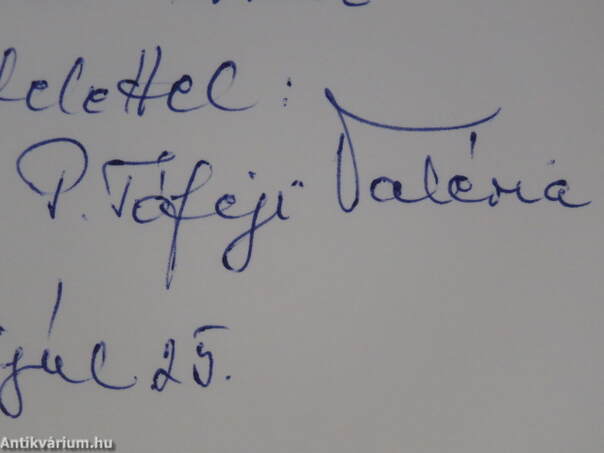 elettel:
P. Tófeji Valéria
júl. 25.
Antikvárium.hu